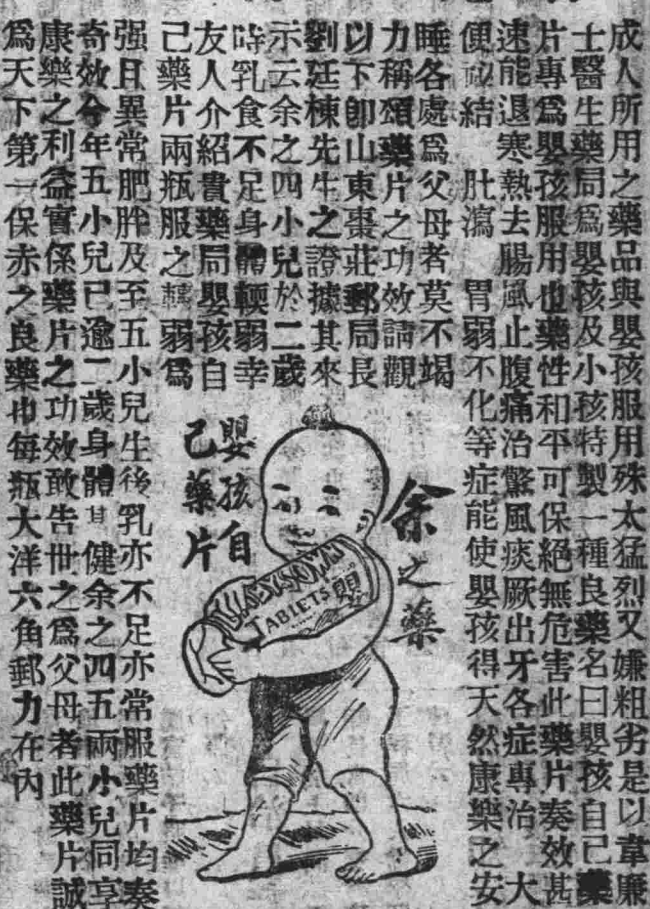 成人所用之藥品與嬰孩服用殊太猛烈又嫌粗劣是以韋廉
士醫生藥局爲嬰孩及小孩特製一種良藥名曰嬰孩自己藥
片專爲嬰孩服用也藥性和平可保絕無危害此藥片奏效甚
速能退寒熱去腸風止腹痛治驚風痰厥出牙各症專治 大
便祕結 肚瀉 胃弱不化等症能使嬰孩得天然康樂之安
睡各處爲父母者莫不竭
力稱頌藥片之功效請觀
以下卽山東棗莊郵局長
劉廷棟先生之證據其來
示云余之四小兒於二歲
時乳食不足身體輭弱幸
友人介紹貴藥局嬰孩自
己藥片兩瓶服之轉弱爲
强日異常肥胖及至五小兒生後乳亦不足亦常服藥片均奏
奇效今年五小兒已逾二歲身體甚健余之四五兩小兒同享
康樂之利益實係藥片之功效敢告世之爲父母者此藥片誠
爲天下第一保赤之良藥也每瓶大洋六角郵力在內
余之藥
嬰孩自
己藥片
TABLETS
嬰